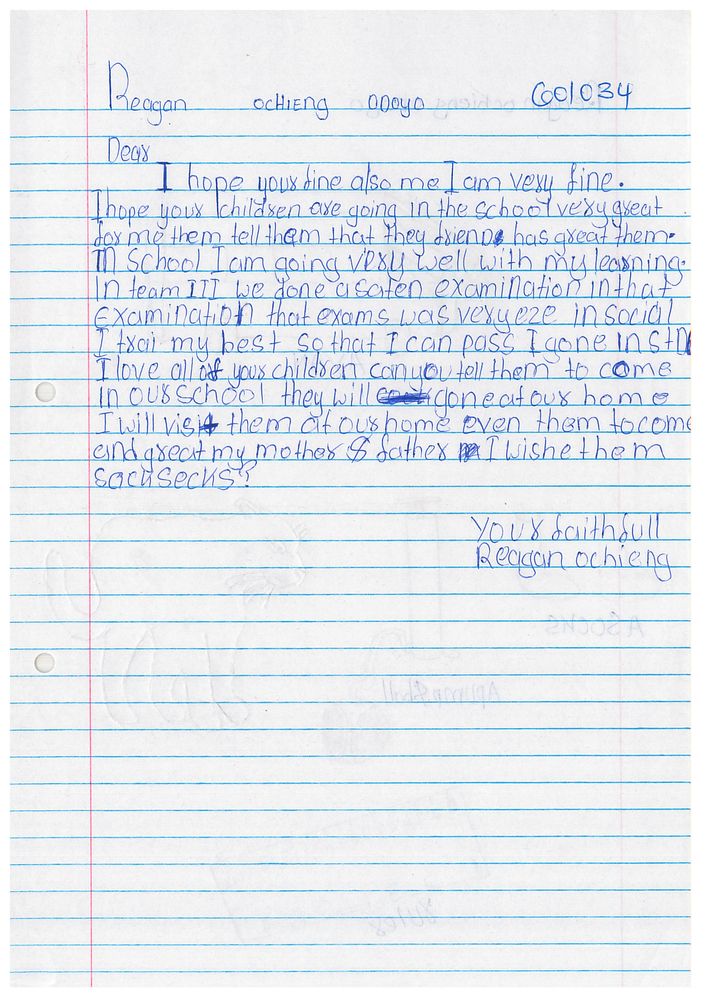 Reagan ochieng odoyo G01034
Dear
I hope your fine also me I am very fine.
I hope your children are going in the school very great
for me them tell them that they friend has great them.
In School I am going very well with my learning.
In team III we done a saten examination in that
examination that exams was very eze in social
I trai my best so that I can pass I gone in STD
I love all of your children can you tell them to come
in our school they will gone at our home
I will visit them at our home even them to come
and great my mother & father I wishe them
sachsechs?
Your faithfull
Reagan ochieng
A socks